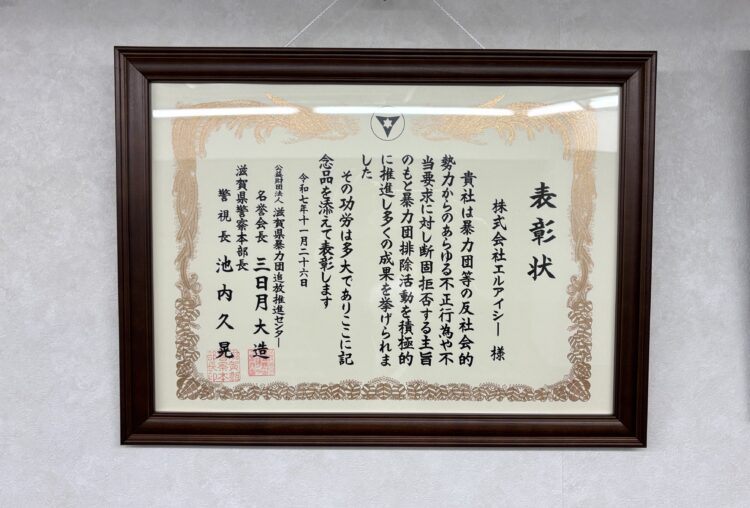 表彰状
株式会社エルアイシー 様
貴社は暴力団等の反社会的
勢力からのあらゆる不正行為や不
当要求に対し断固拒否する主旨
のもと暴力団排除活動を積極的
に推進し多くの成果を挙げられま
した
その功労は多大でありここに記
念品を添えて表彰します
令和七年十一月二十六日
公益財団法人 滋賀県暴力団追放推進センター
名誉会長 三日月大造
滋賀県警察本部長
警視長 池内久晃